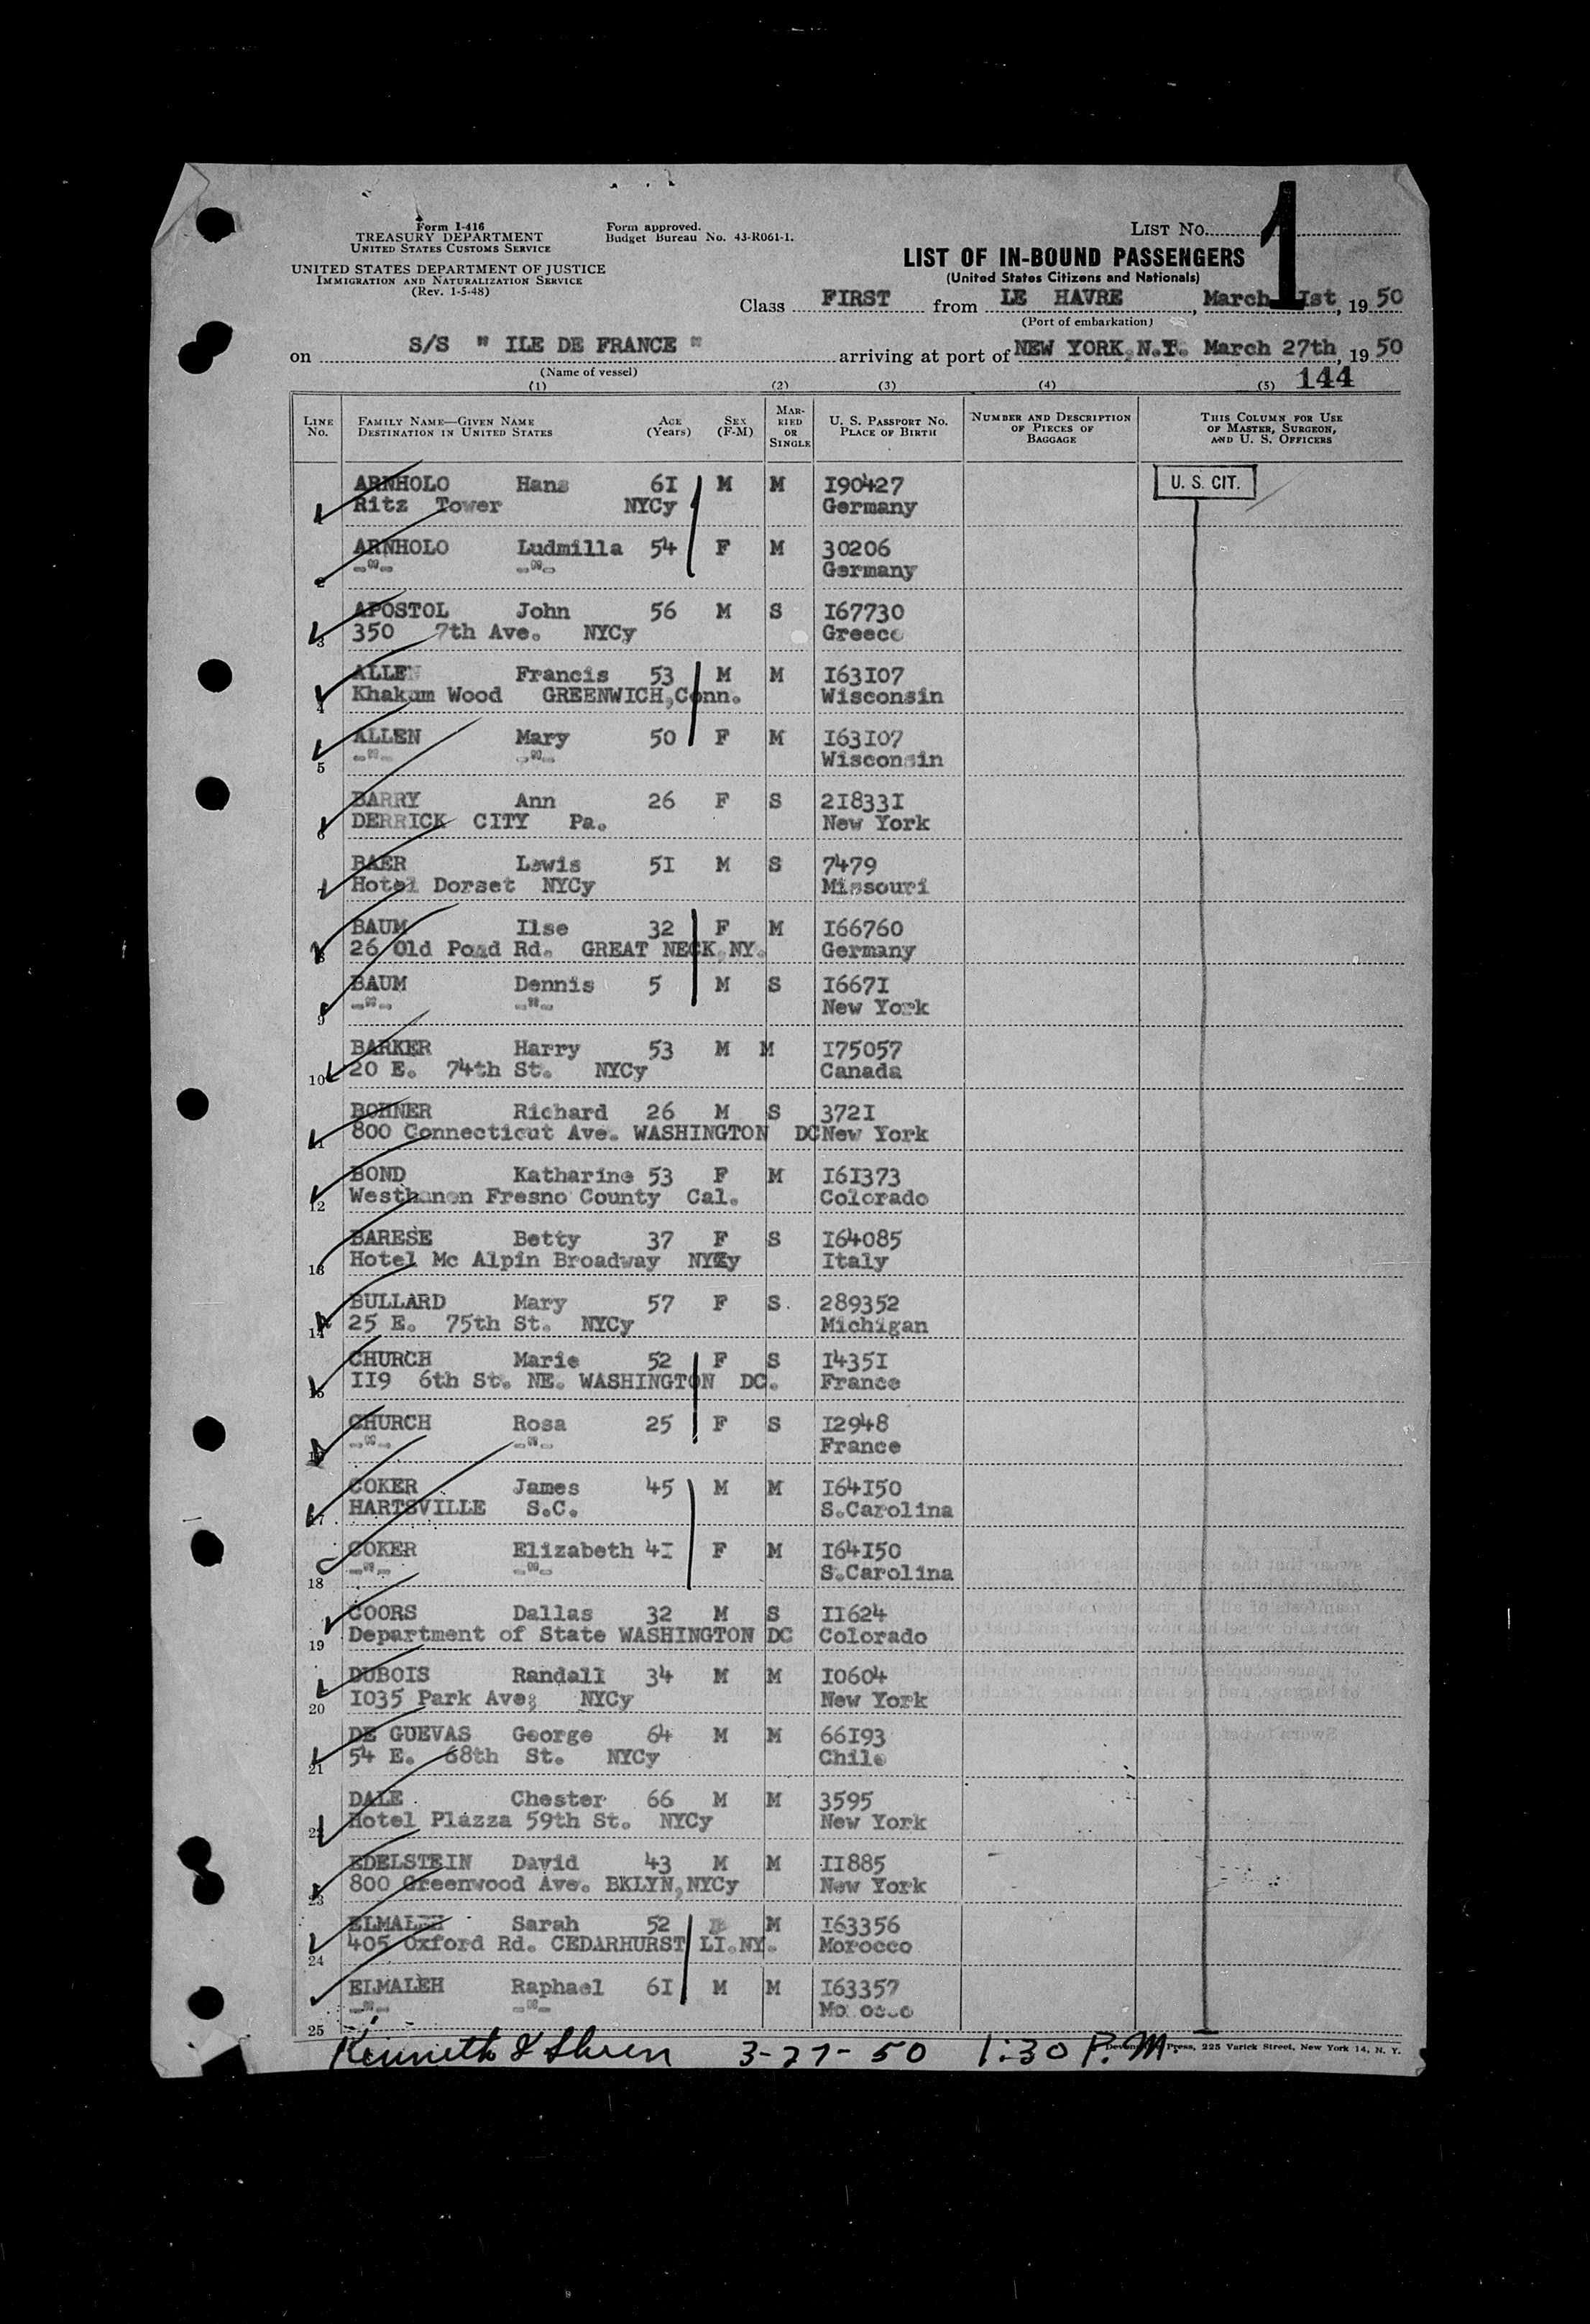 Form I-416
TREASURY DEPARTMENT
UNITED STATES CUSTOMS SERVICE
UNITED STATES DEPARTMENT OF JUSTICE
IMMIGRATION AND NATURALIZATION SERVICE
(Rev. 1-5-48)
Form approved.
Budget Bureau No. 43-R061-1.
LIST NO. 1
LIST OF IN-BOUND PASSENGERS
(United States Citizens and Nationals)
Class FIRST from LE HAVRE, March Ist, 19 50
(Port of embarkation)
on S/S " ILE DE FRANCE " arriving at port of NEW YORK,N.Y. March 27th, 19 50
(Name of vessel)
(1) (2) (3) (4) (5) 144
LINE No. FAMILY NAME—GIVEN NAME DESTINATION IN UNITED STATES AGE (Years) SEX (F-M) MARRIED OR SINGLE U. S. PASSPORT NO. PLACE OF BIRTH NUMBER AND DESCRIPTION OF PIECES OF BAGGAGE THIS COLUMN FOR USE OF MASTER, SURGEON, AND U. S. OFFICERS
ARNHOLO Hans 6I M M I90427 U. S. CIT.
Ritz Tower NYCy Germany
ARNHOLO Ludmilla 54 F M 30206
2 -"- -"- Germany
APOSTOL John 56 M S I67730
3 350 7th Ave. NYCy Greece
ALLEN Francis 53 M M I63I07
4 Khakum Wood GREENWICH,Conn. Wisconsin
ALLEN Mary 50 F M I63I07
5 -"- -"- Wisconsin
BARRY Ann 26 F S 2I833I
6 DERRICK CITY Pa. New York
BAER Lewis 5I M S 7479
7 Hotel Dorset NYCy Missouri
BAUM Ilse 32 F M I66760
8 26 Old Poad Rd. GREAT NECK,NY. Germany
BAUM Dennis 5 M S I667I
9 -"- -"- New York
BARKER Harry 53 M M I75057
10 20 E. 74th St. NYCy Canada
BOHNER Richard 26 M S 372I
11 800 Connecticut Ave. WASHINGTON DC New York
BOND Katharine 53 F M I6I373
12 Westhanon Fresno County Cal. Colorado
BARESE Betty 37 F S I64085
13 Hotel Mc Alpin Broadway NYCy Italy
BULLARD Mary 57 F S. 289352
14 25 E. 75th St. NYCy Michigan
CHURCH Marie 52 F S I435I
15 II9 6th St. NE. WASHINGTON DC. France
CHURCH Rosa 25 F S I2948
16 -"- -"- France
COKER James 45 M M I64I50
17 HARTSVILLE S.C. S.Carolina
COKER Elizabeth 4I F M I64I50
18 -"- -"- S.Carolina
COORS Dallas 32 M S II624
19 Department of State WASHINGTON DC Colorado
DUBOIS Randall 34 M M I0604
20 I035 Park Ave; NYCy New York
DE GUEVAS George 64 M M 66I93
21 54 E. 68th St. NYCy Chile
DALE Chester 66 M M 3595
22 Hotel Plazza 59th St. NYCy New York
EDELSTEIN David 43 M M II885
23 800 Greenwood Ave. BKLYN,NYCy New York
ELMALEH Sarah 52 M I63356
24 405 Oxford Rd. CEDARHURST LI.NY. Morocco
ELMALEH Raphael 6I M M I63357
25 -"- -"- Morocco
Kenneth 3-27-50 1:30 P.M.
Press, 225 Varick Street, New York 14, N. Y.